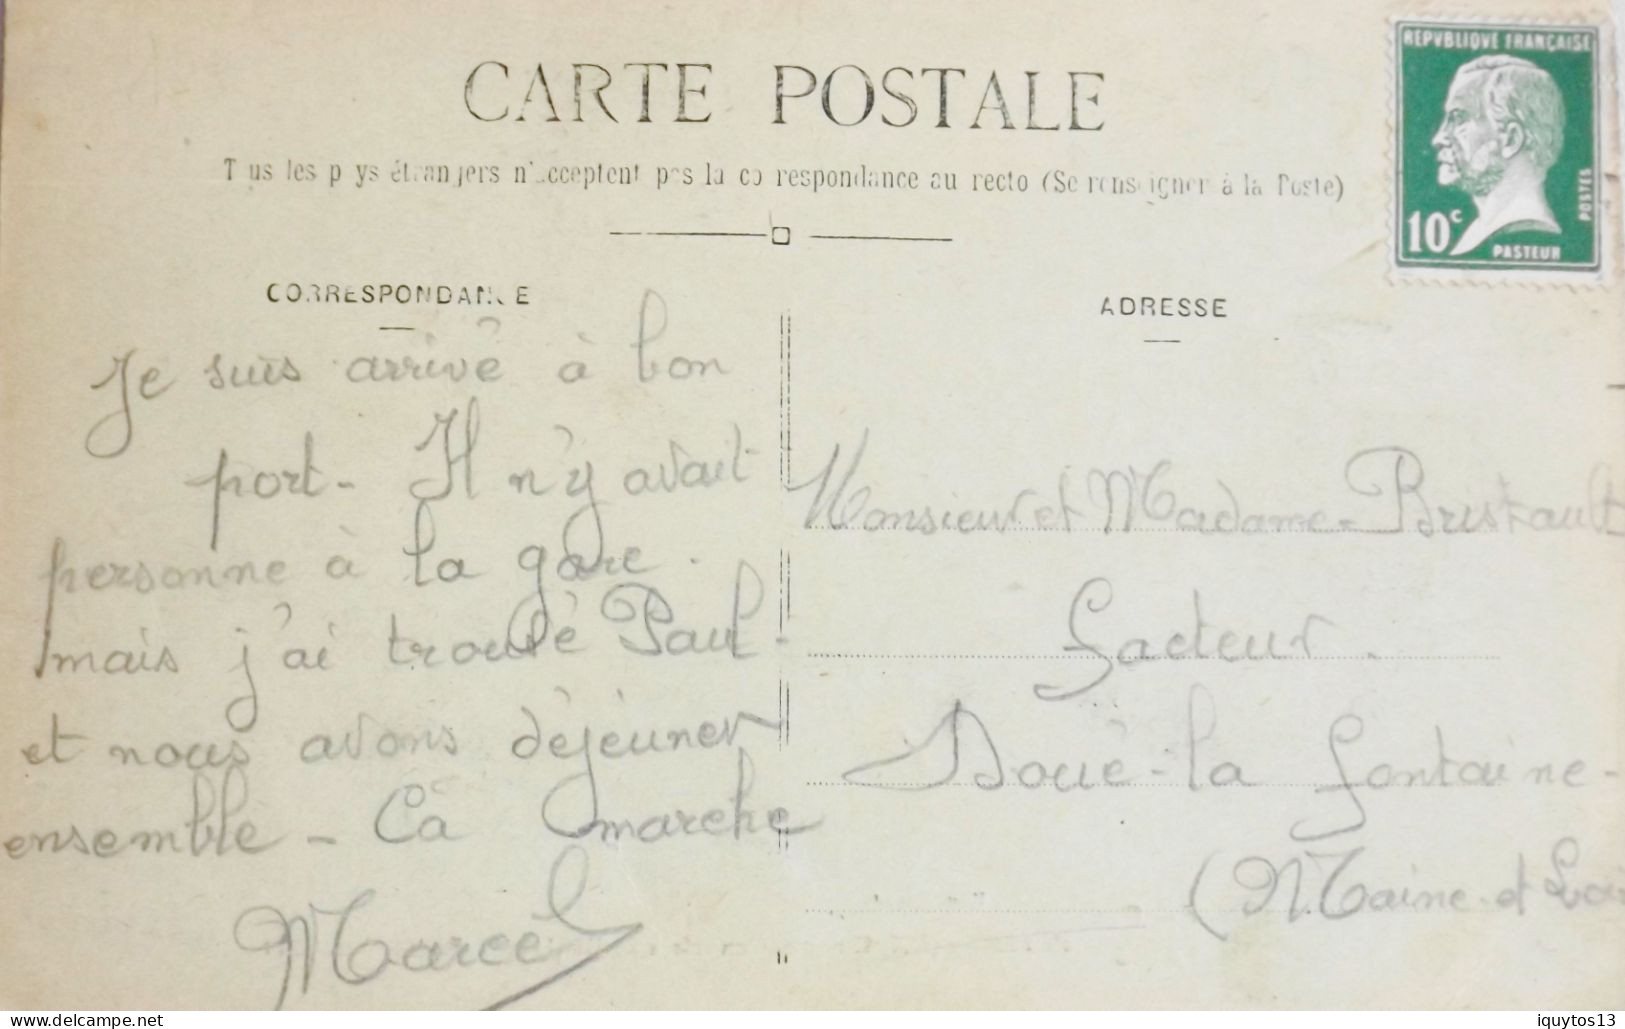 CARTE POSTALE
Tous les pays étrangers n'acceptent pas la correspondance au recto (Se renseigner à la Poste)
REPVBLIQVE FRANÇAISE
10c
POSTES
PASTEUR
CORRESPONDANCE
Je suis arrivé à bon
port - Il n'y avait
personne à la gare.
mais j'ai trouvé Paul -
et nous avons déjeuner
ensemble - Ca marche
Marcel
ADRESSE
Monsieur et Madame
Facteur.
Doué-la Fontaine-
(Maine et Loi
Delcampe.net
iquytos13